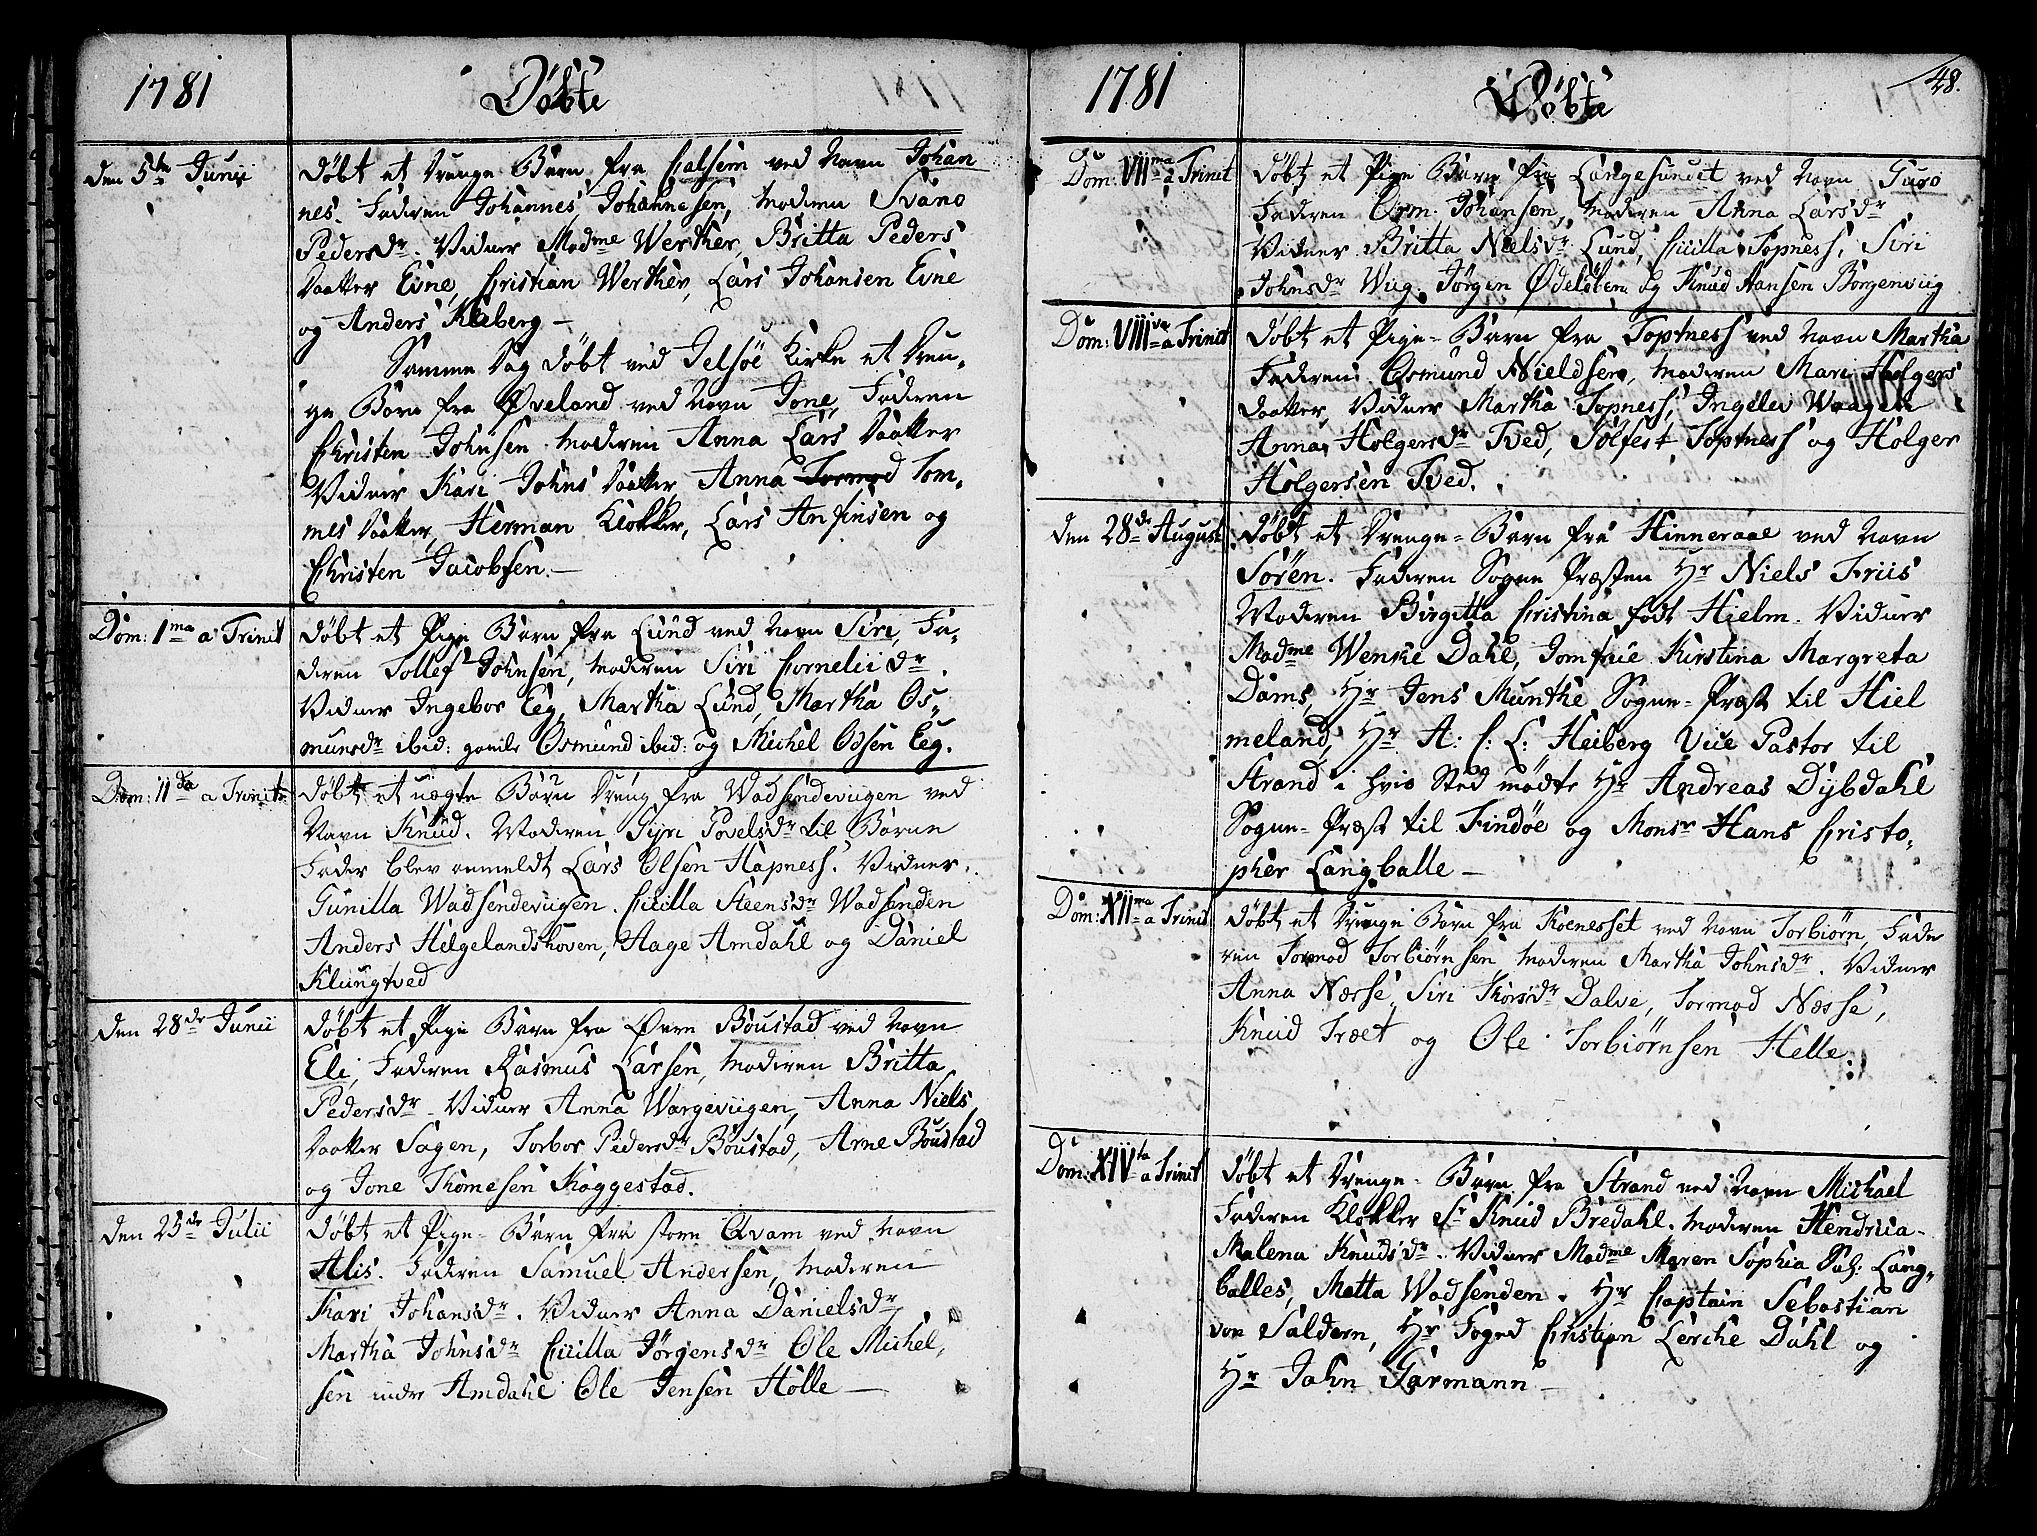 1781
Döbte
den 5te Junii
Döbt et Drenge Barn fra Galsem ved Navn Johan
nes. Faderen Johannes Johannesen, Moderen Svano
Pedersdr. Vidner Madme Werther, Britta Peders
Daatter Eine, Christian Werther, Lars Johansen Eine
og Anders Kleberg –
Samme Dag döbt ved Jelsöe Kirke et Dren,
ge Barn fra Öveland ved Navn Jone, Faderen
Christen Johnsen. Moderen Anna Lars Daatter
Vidner Kari Johns Daatter Anna Tormod Tom,
mes Daatter, Herman Klokker, Lars Anfinsen og
Christen Jacobsen. –
Dom: 1ma a Trinit
Döbt et Pige Barn fra Lund ved Navn Siri, Fa,
deren Tollef Johnsen, Moderen Siri Cornelii dr.
Vidner Ingebor Eeg, Martha Lund, Martha Os,
munsdr ibid: gamle Osmund ibid: og Michel Odsen Eeg.
Dom: IIda a Trinit:
Döbt et uægte Barn Dreng fra Wadsendeviigen ved
Navn Knud. Moderen Gyri Povelsdr til Barne
Fader blev anmeldt Lars Olsen Hapness. Vidner.
Gunilla Wadsendeviigen. Cicilla Steensdr Wadsenden
Anders Helgelandshoven, Aage Amdahl og Daniel
Klungtved
den 28de Junii
Döbt et Pige Barn fra Övre Böustad ved Navn
Eli, Faderen Rasmus Larsen, Moderen Britta
Pedersdr. Vidner Anna Wargeviigen, Anna Niels
Daatter Sagen, Torbor Pedersdr Böustad, Arne Böustad
og Jone Thomesen Kaggestad.
den 25de Julii
Döbt et Pige-Barn fra store Qvam ved Navn
Alis. Faderen Samuel Andersen, Moderen
Kari Johansdr. Vidner Anna Danielsdr
Martha Johnsdr Cicilla Jörgensdr Ole Michel,
sen indre Amdahl Ole Jensen Hölle –
1781
Döbte
48.
Dom: VIIma a Trinit
Döbt et Pige Barn fra Langesundet ved Navn Guro
Faderen Orm Johansen, Moderen Anna Larsdr
Vidner Britta Nielsdr Lund, Cicilla Topness, Siri
Johnsdr Wiig. Jörgen Ödelöben og Knud Hansen Börgeviig
Dom: VIIIva a Trinit
Döbt et Pige-Barn fra Toptness ved Navn Martha
Faderen Osmund Nieldsen, Moderen Mari Holgers
daatter, Vidner Martha Topness, Ingelev Waagen
Anna Holgersdr Tved, Sölfest Toptness og Holger
Holgersen Tved.
den 28de August
Döbt et Drenge-Barn fra Hinneraae ved Navn
Sören. Faderen Sogne Præsten Hr Niels Friis
Moderen Birgitta Cristina födt Hielm. Vidner
Madme Wenke Dahl, Jomfrue Kirstina Margreta
Dams, Hr Jens Munthe Sogne-Præst til Hiel
meland, Hr A: C: L: Heiberg Vice Pastor til
Strand i hvis Sted mödte Hr Andreas Dybdahl
Sogne-Præst til Findöe og Monsr Hans Cristo,
pher Langballe –
Dom: XIIma a Trinit
Döbt et Drenge Barn fra Koenesset ved Navn Torbiörn, Fade
ren Tormod Torbiörnsen Moderen Martha Johnsdr. Vidner
Anna Næsse, Siri Thorsdr Dalve, Tormod Næsse,
Knud Træet og Ole Torbiörnsen Helle.
Dom: XIVta a Trinit
Döbt et Drenge-Barn fra Strand ved Navn Michael
Faderen Klokker Sr Knud Bredahl. Moderen Hendrica
Malena Knudsdr. Vidner Madme Maren Sophia Sal: Lang,
balles, Metta Wadsenden. Hr Captain Sebastian
von Saldern, Hr Foged Cristian Lerche Dahl og
Hr Jahn Garmann –